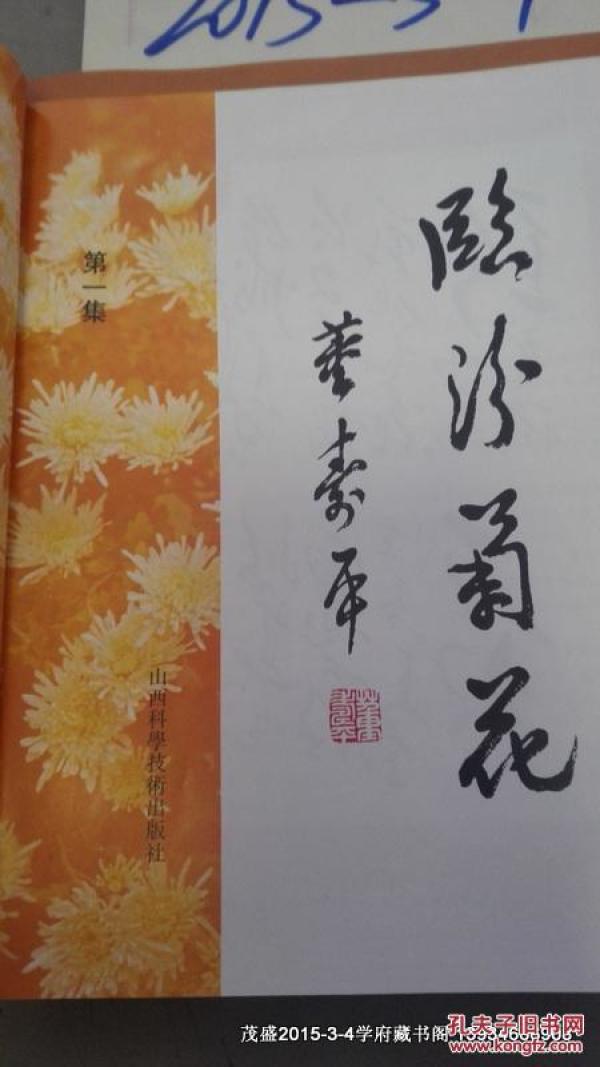 2015-3-4
臨汾菊花
董壽平
第一集
山西科學技術出版社
茂盛2015-3-4学府藏书阁
孔夫子旧书网
www.kongfz.com